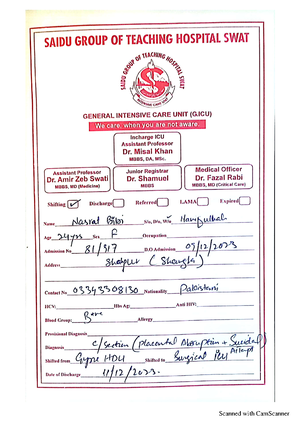 SAIDU GROUP OF TEACHING HOSPITAL SWAT
SAIDU GROUP OF TEACHING HOSPITAL SWAT
GENERAL INTENSIVE CARE UNIT (GICU)
We care, when you are not aware.
Incharge ICU
Assistant Professor
Dr. Misal Khan
MBBS, DA, MSc.
Assistant Professor
Dr. Amir Zeb Swati
MBBS, MD (Medicine)
Junior Registrar
Dr. Shamuel
MBBS
Medical Officer
Dr. Fazal Rabi
MBBS, MD (Critical Care)
Shifting Discharge Referred LAMA Expired
Name Nasrat Bibi S/o, D/o, W/o
Age 24yrs Sex F Occupation
Admission No 81/317 D.O Admission 09/12/2023
Address Shahpur (Shangla)
Contact No 03343308130 Nationality Pakistani
HCV: Hbs Ag: Anti HIV:
Blood Group: Allergy
Provisional Diagnosis
Diagnosis C/section (placental Abruption + Suicidal Attempt
Shifted from Gynae HDU Shifted to Surgical
Date of Discharge 11/12/2023
Scanned with CamScanner